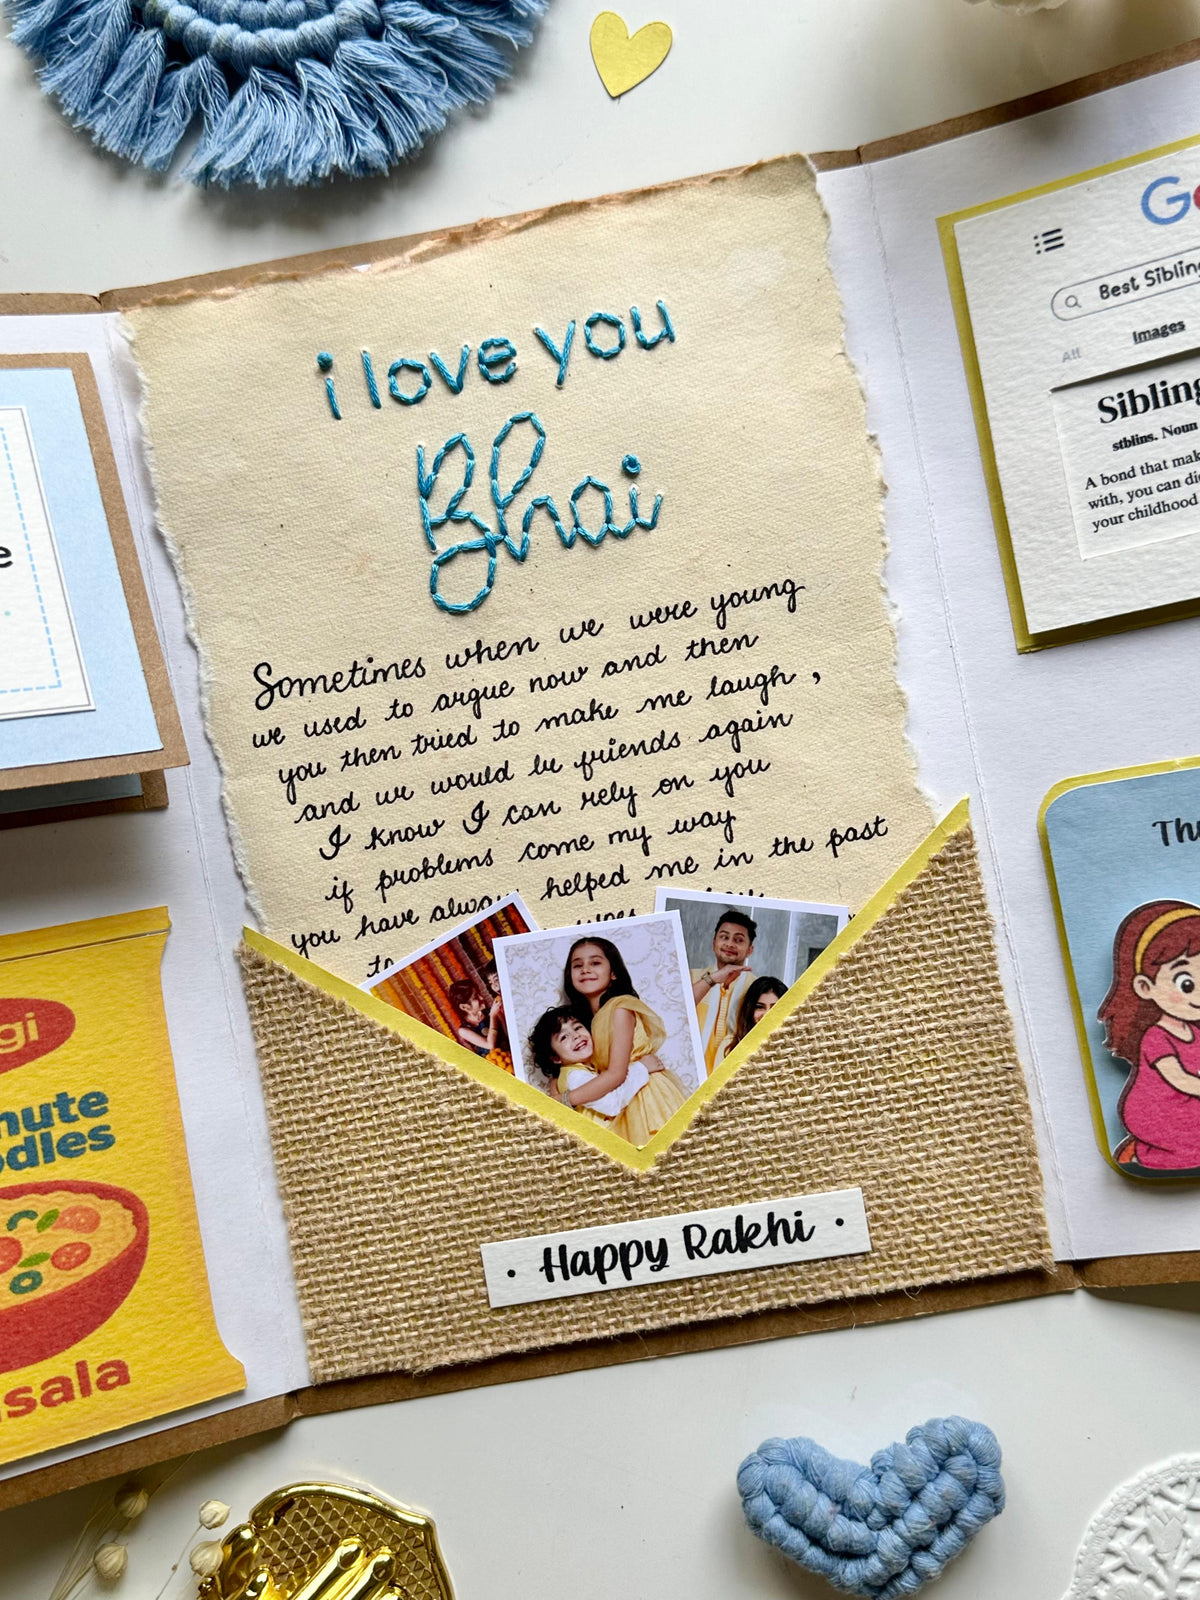 i love you
Bhai
Sometimes when we were young
we used to argue now and then
you then tried to make me laugh,
and we would be friends again
I know I can rely on you
if problems come my way
you have always helped me in the past
to
• Happy Rakhi •
e
gi
nute
odles
sala
Go
Best Sibling
All Images
Sibling
siblins. Noun
A bond that mak
with, you can di
your childhood
Th